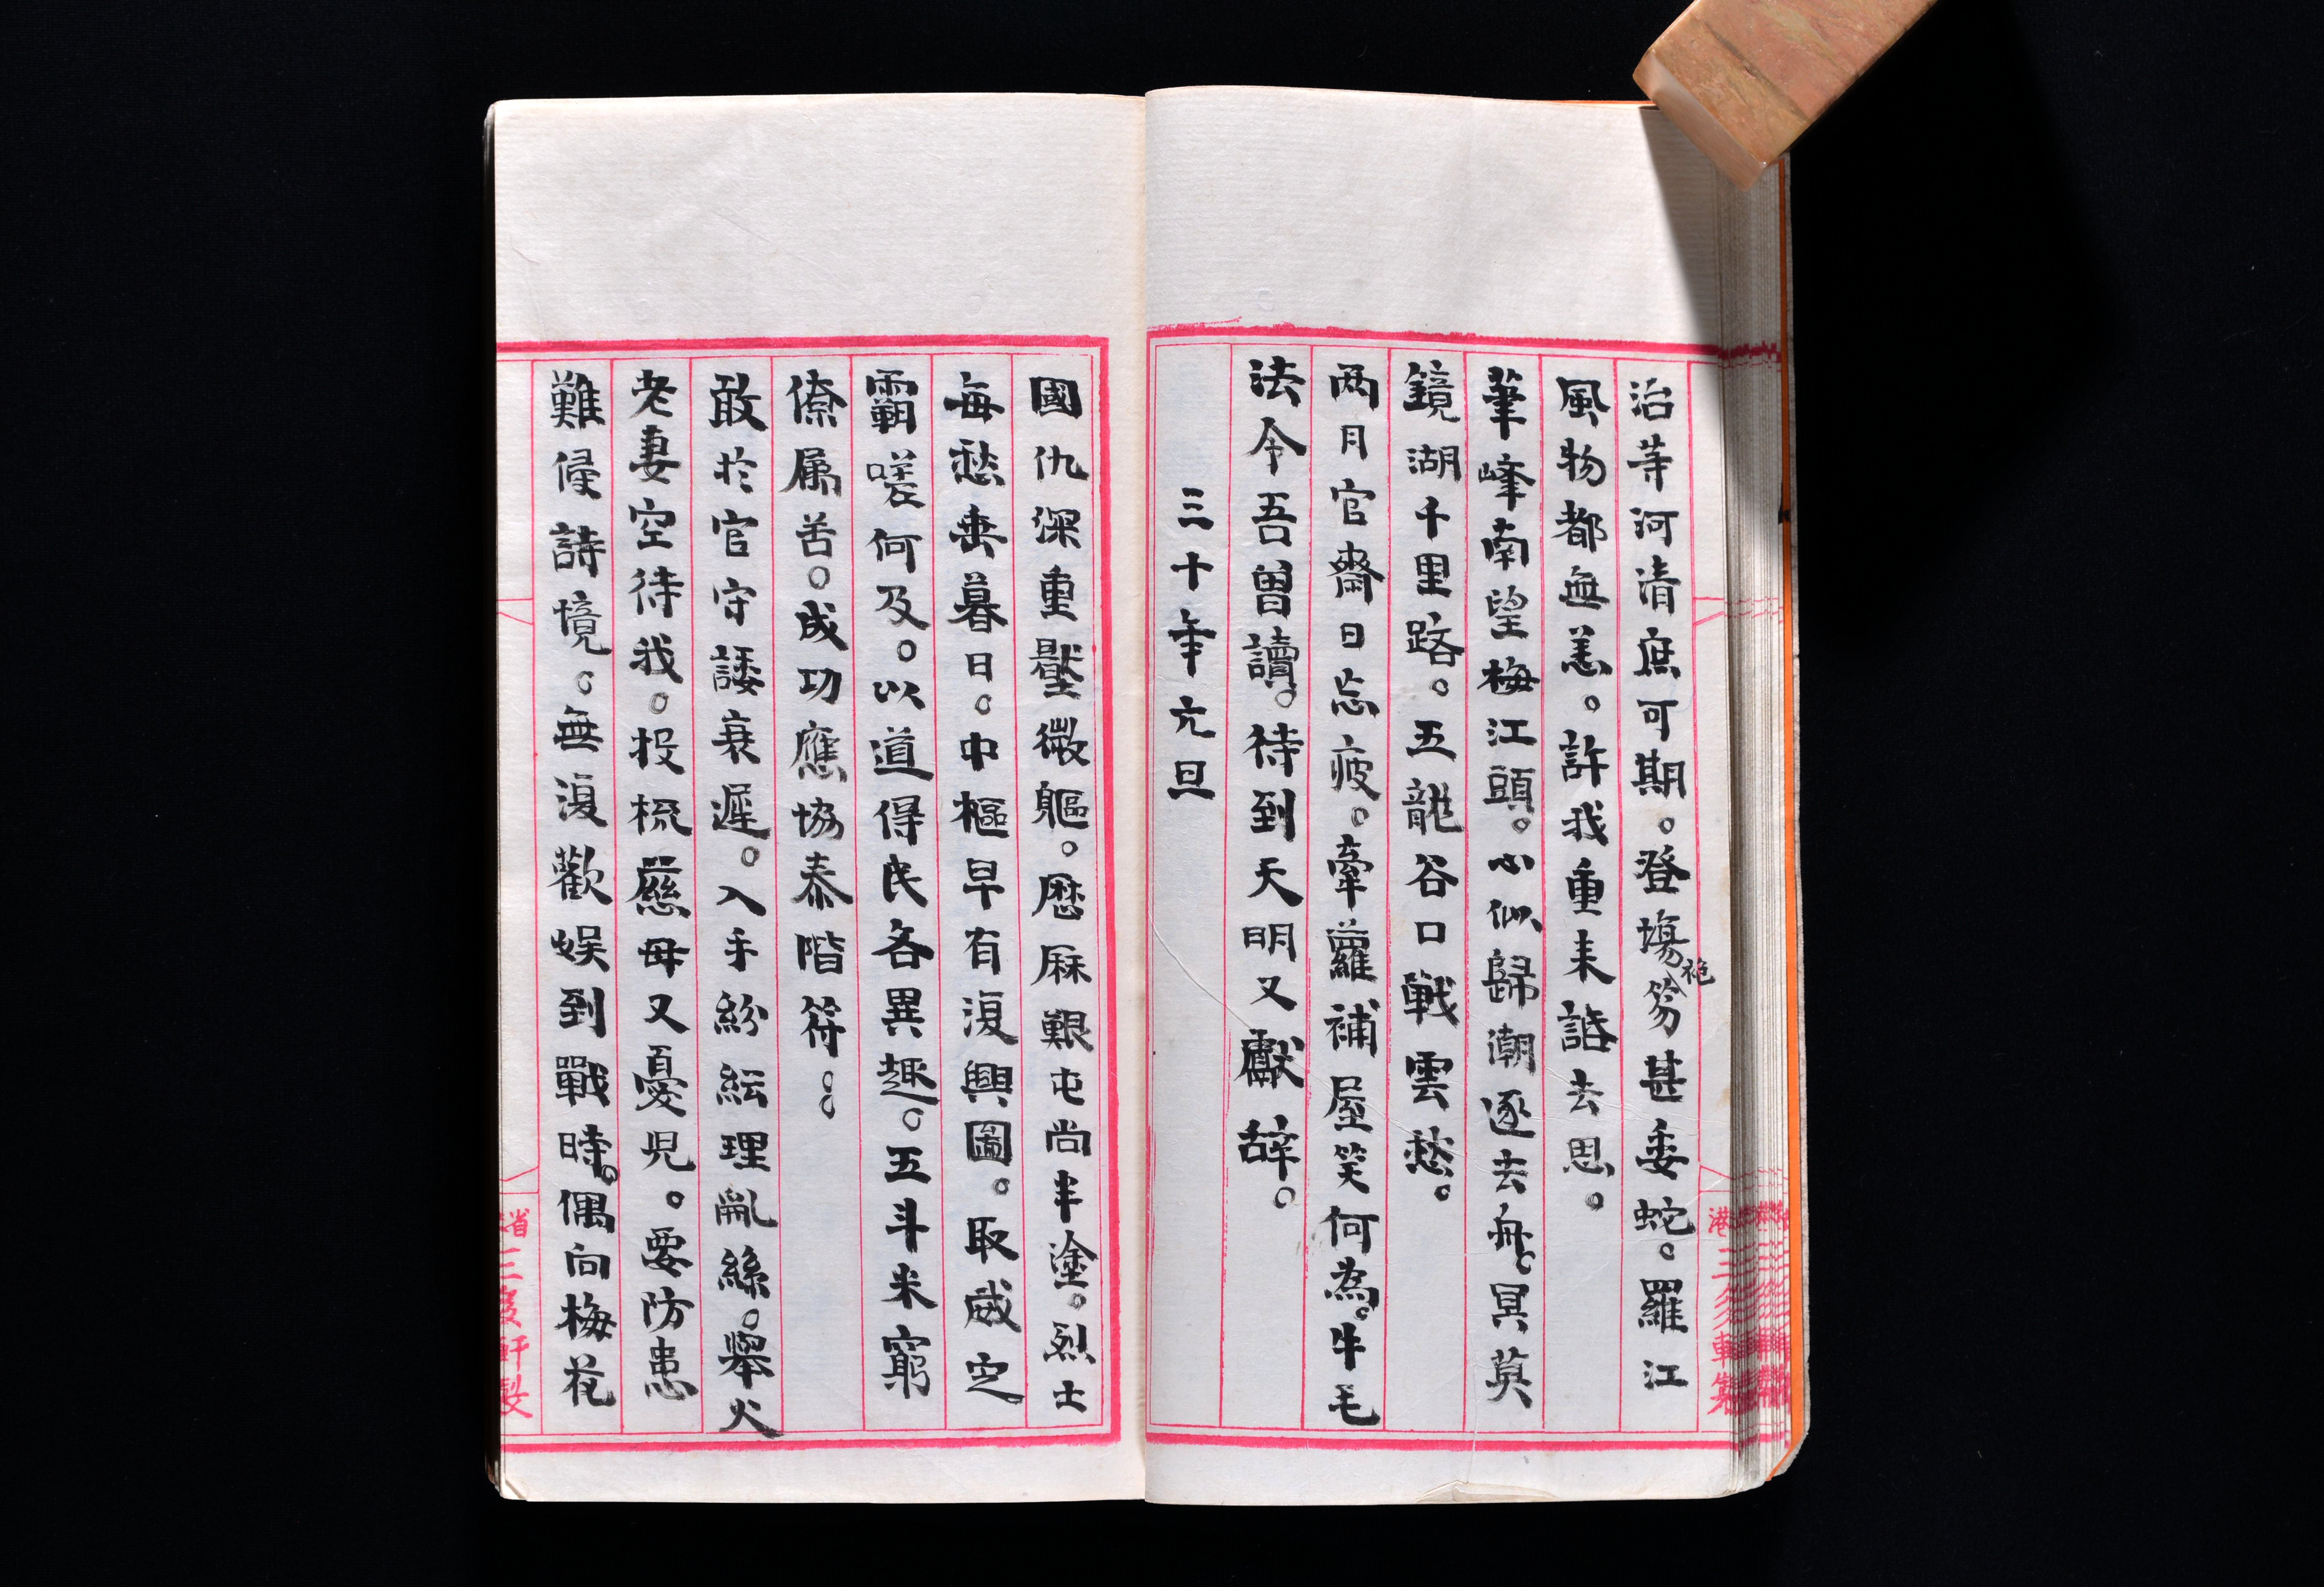 治等河清庶可期。登場袍笏甚委蛇。羅江
風物都無恙。許我重来誥去思。
筆峰南望梅江頭。心似歸潮逐去舟。冥莫
鏡湖千里路。五龍谷口戰雲愁。
两月官齋日忘疲。牽蘿補屋笑何為。牛毛
法令吾曾讀。待到天明又獻辞。
三十年元旦
國仇深重壓微軀。歷厤艱屯尚半塗。烈士
每愁垂暮日。中樞早有復興圖。取威定
霸嗟何及。以道得民各異趣。五斗米窮
僚属苦。成功應協泰階符。
敢於官守諉衰遲。入手紛紜理亂絲。舉火
老妻空待我。投梳慈母又憂児。要防患
難侵詩境。無復歡娱到戰時。偶向梅花
港三多軒製
省三多軒製